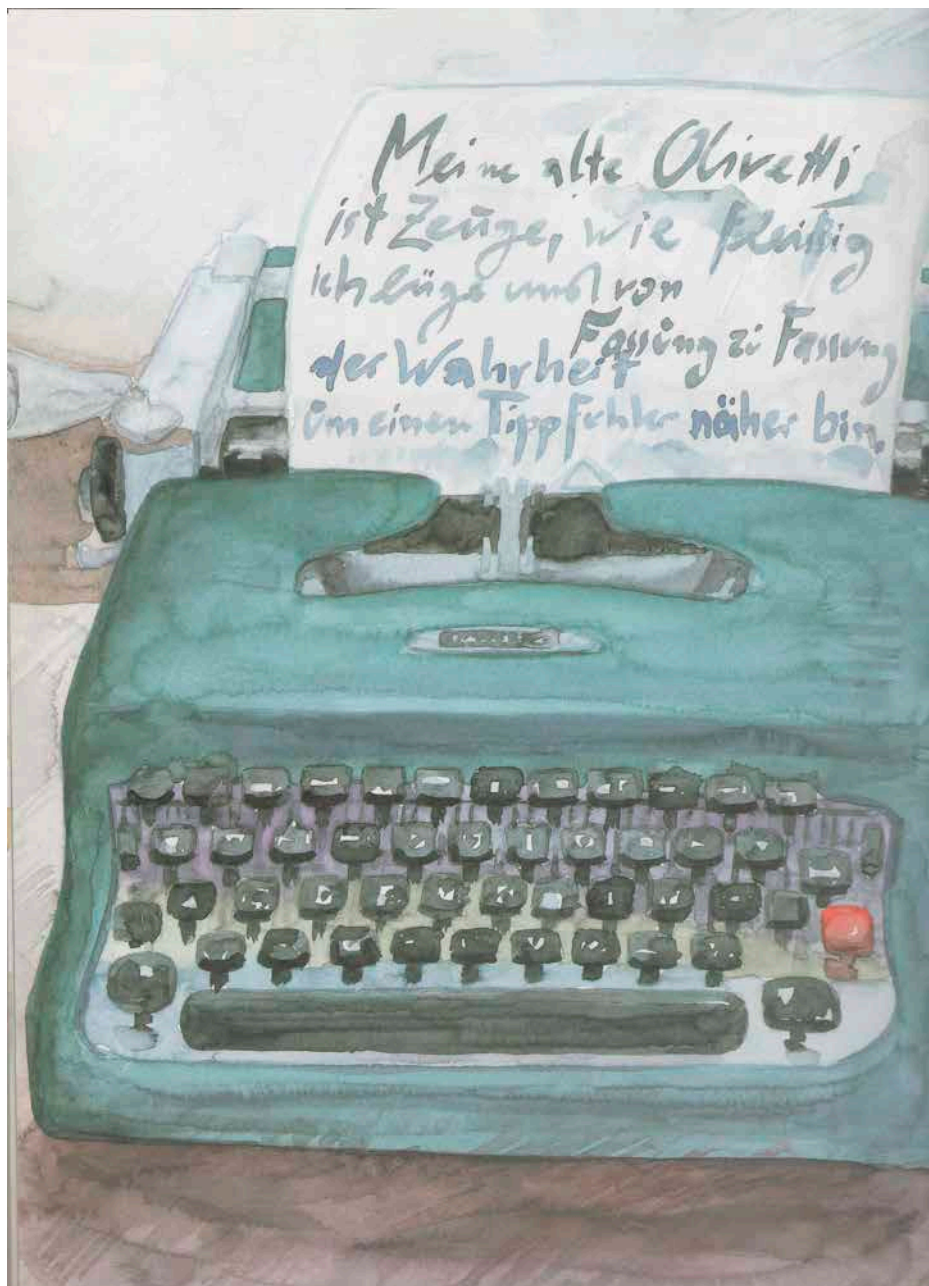 Meine alte Olivetti
ist Zeuge, wie fleißig
ich lüge und von
Fassung zu Fassung
der Wahrheit
um einen Tippfehler näher bin.